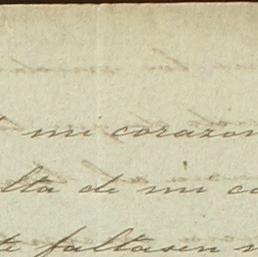 mi corazon
lta de mi co
te faltasen